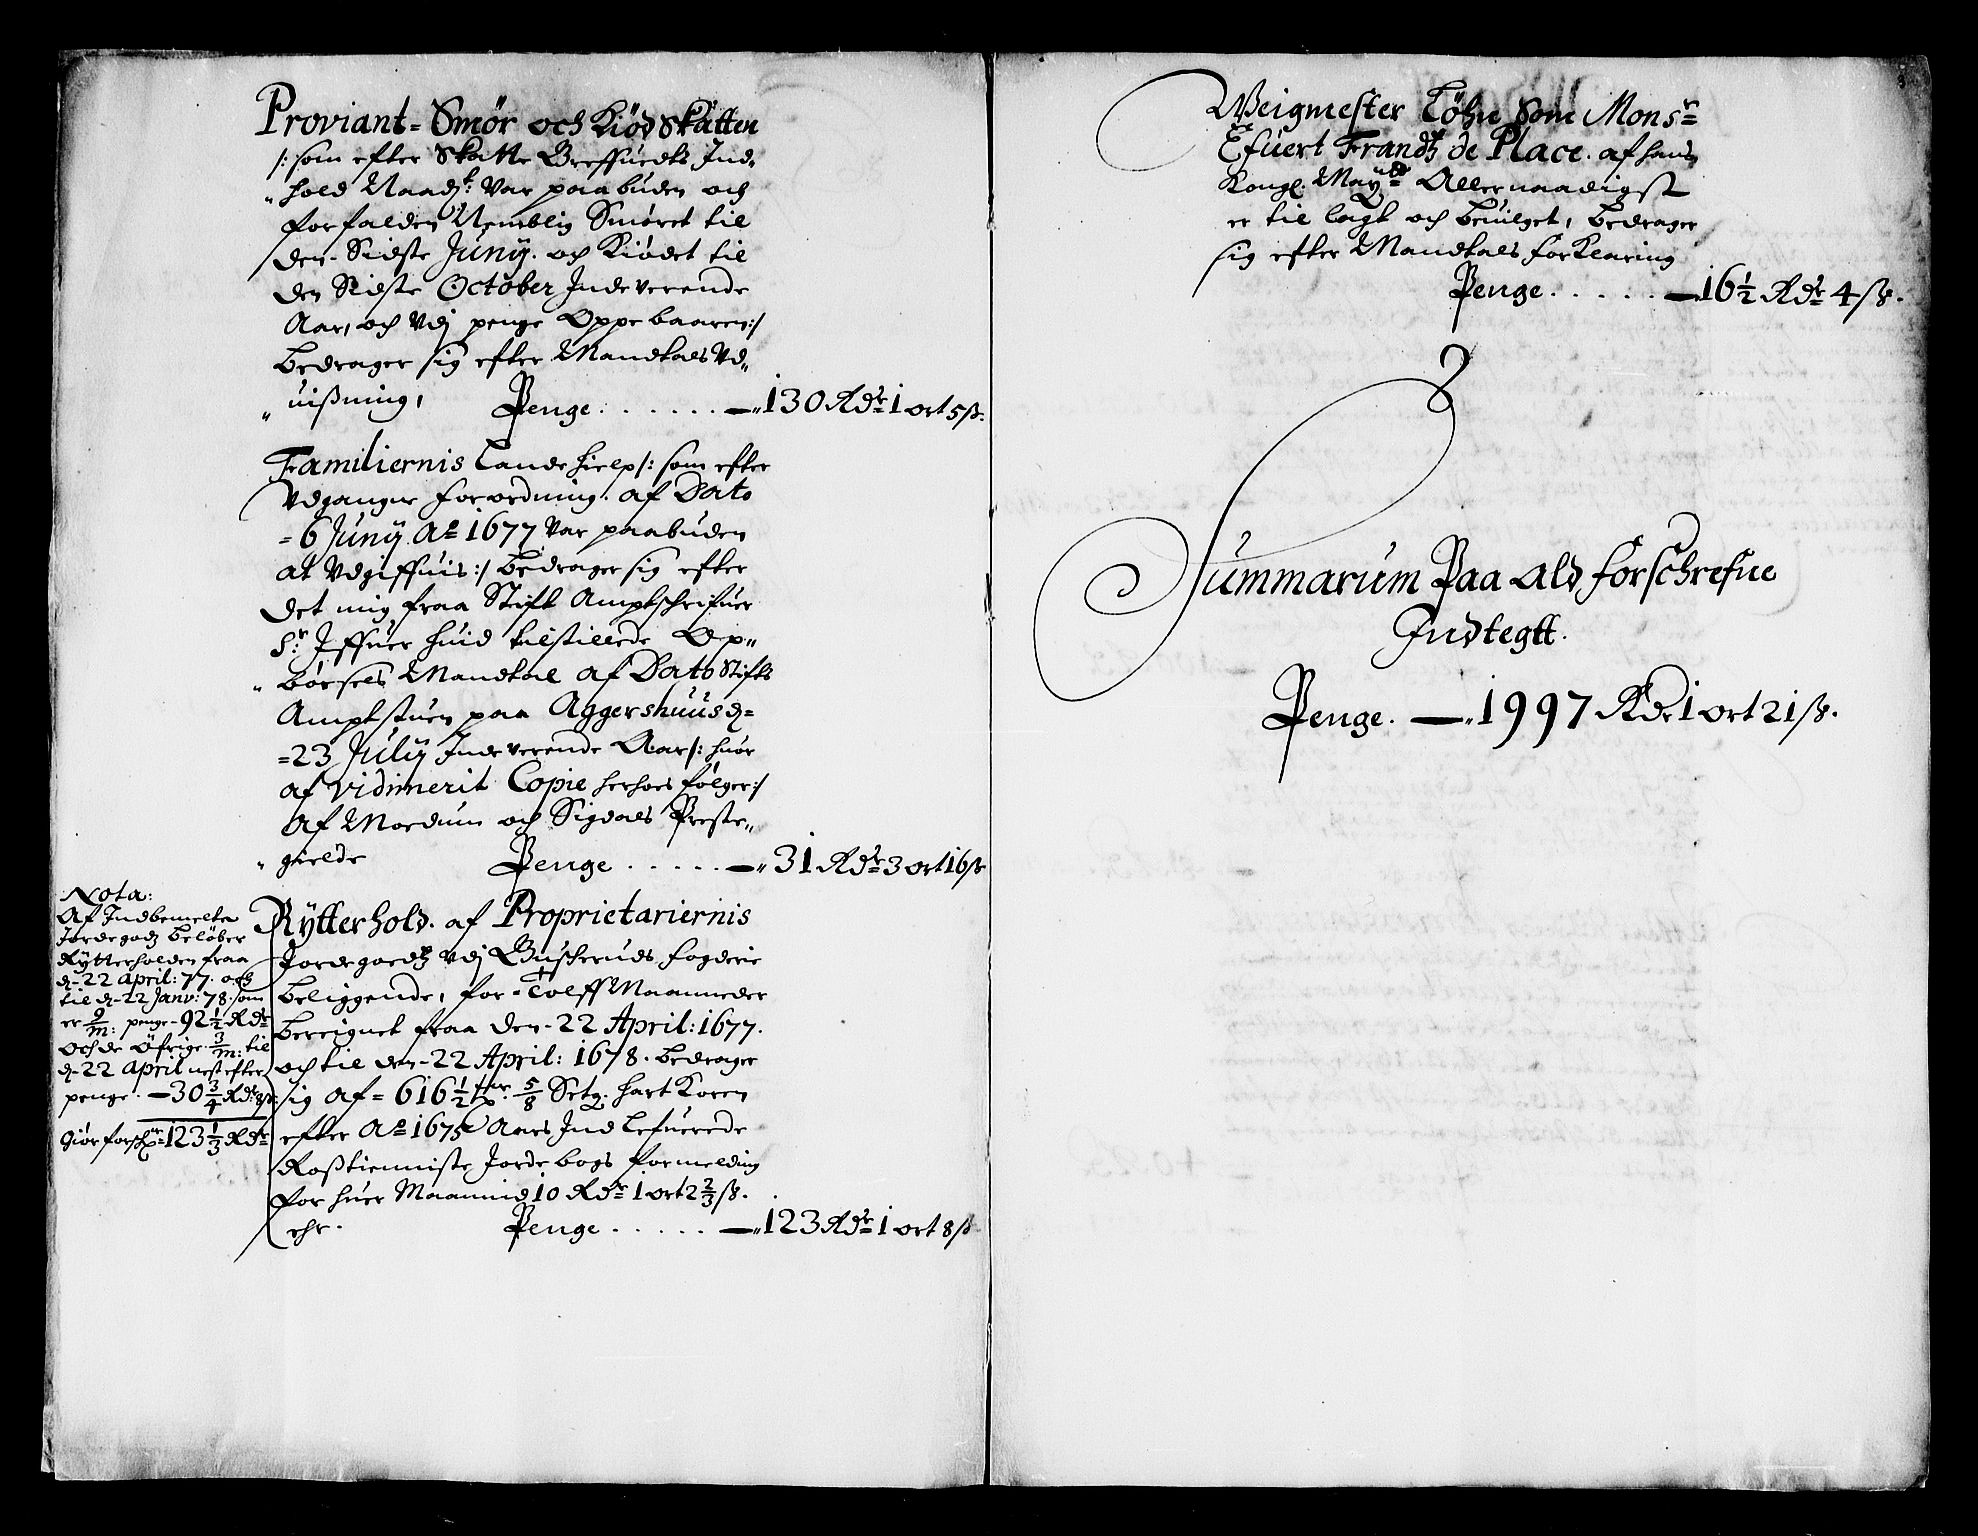 Proviant= Smör och Kiöd Skatten
/: som efter Skatte Breffuedts Ind,
"hold Naadg: Var paabuden och
forfalden Nemblig Smöret til
den Sidste Junÿ. och Kiödet til
den Sidste October Indeverende
Aar, och Vdj penge Oppebaaren :/
bedrager sig efter Mandtals Vd"
"uißning, Penge. . . . . . . —" 130 Rdr 1 ort 5 ß.
Familiernis Landehielp /: som efter
Vdgangne forordning. af Dato
=6 Junÿ Ao 1677 Var paabuden
at Vdgiffuis :/ bedrager sig efter
det mig fraa Stift Amptschrifuer
Sr: Iffuer Huid tilstillede Op"
"börsels Mandtal af Dato Stifts
Amptstuen paa Aggershuus d=
=23 Julÿ Indeverende Aar /: huor
af vidimerit Copie herhos fölger :/
Af Modum och Sigdals Preste"
"gielde Penge . . . . . —" 31 Rdr 3 ort 16 ß
Nota:
Af Indbemelte
Jordegodz belöber
Rÿtterholden fraa
d-22 April: 77. och
til d-22 Janv: 78: som
er 9/m: penge - 92½ Rdr
och de öfrige 3/m: til
d-22 April nest efter
penge. — 30 3/4 Rdr 8 ß.
Giör forschr = 123 1/3 Rdr
Rÿtterhold. af Proprietariernis
Jordegodz Vdj Buscheruds fogderie
beliggende, for - Tolff Maanneder
bereignet fraa den - 22 April: 1677.
och til den - 22 April: 1678. bedrager
sig af = 616½ 5/8 Setg. hart Koren
efter Ao 1675 Aars Ind Lefuerede
Roßtienniste Jordebogs formelding
for huer Maannid 10 Rdr 1 ort 2 2/3 ß.
ehr. Penge . . . . . —" 123 Rdr 1 ort 8 ß
Weigmester Löhn Som Monsr
Efuert Frandtz de Place. af hans
Kongl. Maytt Allernaadigst
er til lagt och beuilget, bedrager
sig efter Mandtals forklaring
Penge . . . . . — 16½ Rdr 4 ß.
Summarum Paa Ald forschrefne
Indtegtt.
Penge. —" 1997 Rdr 1 ort 21 ß.